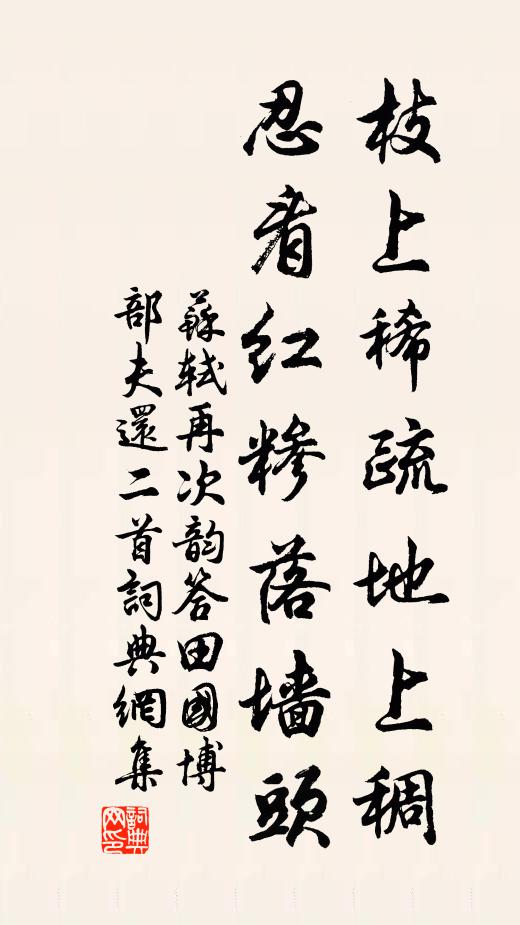 枝上稀疏地上稠
忍看红糁落墙頭
蘇軾再次韵答田國博
部夫還二首詞典網集
詞典网印